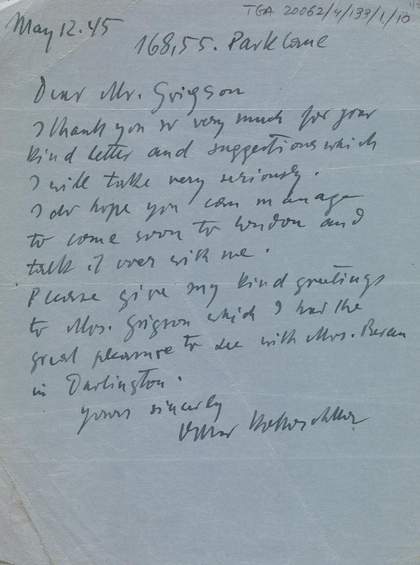 TGA 20062/4/133/1/10
May 12.45
168,55. Park Lane
Dear Mr. Grigson
I thank you so very much for your
kind letter and suggestions which
I will take very seriously.
I do hope you can manage
to come soon to London and
talk it over with me.
Please give my kind greetings
to Mrs. Grigson which I had the
great pleasure to see with Mrs.
in Darlington.
Yours sincerly
Oskar Kokoschka